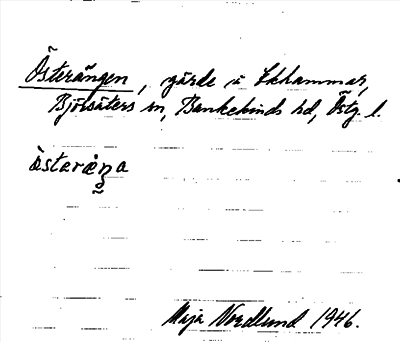 Österängen, gärde i Ekhammar,
Björsäters sn, Bankekinds hd, Östg. l.
Maja Nordlund 1946.